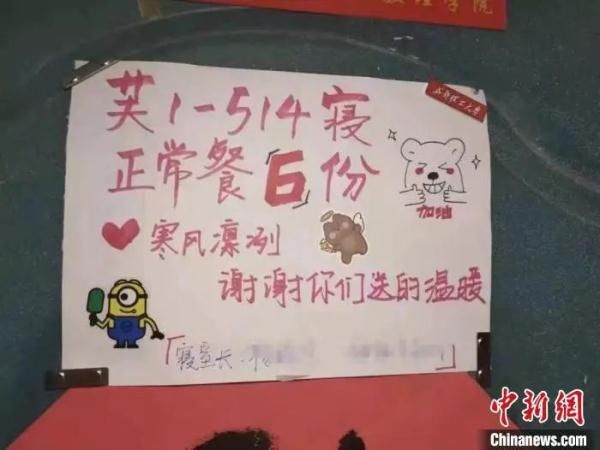 理学院
成都理工大学
芙1-514寝
正常餐「6」份
加油
寒风凛冽
谢谢你们送的温暖
「寝室长:
」
中新网
Chinanews.com